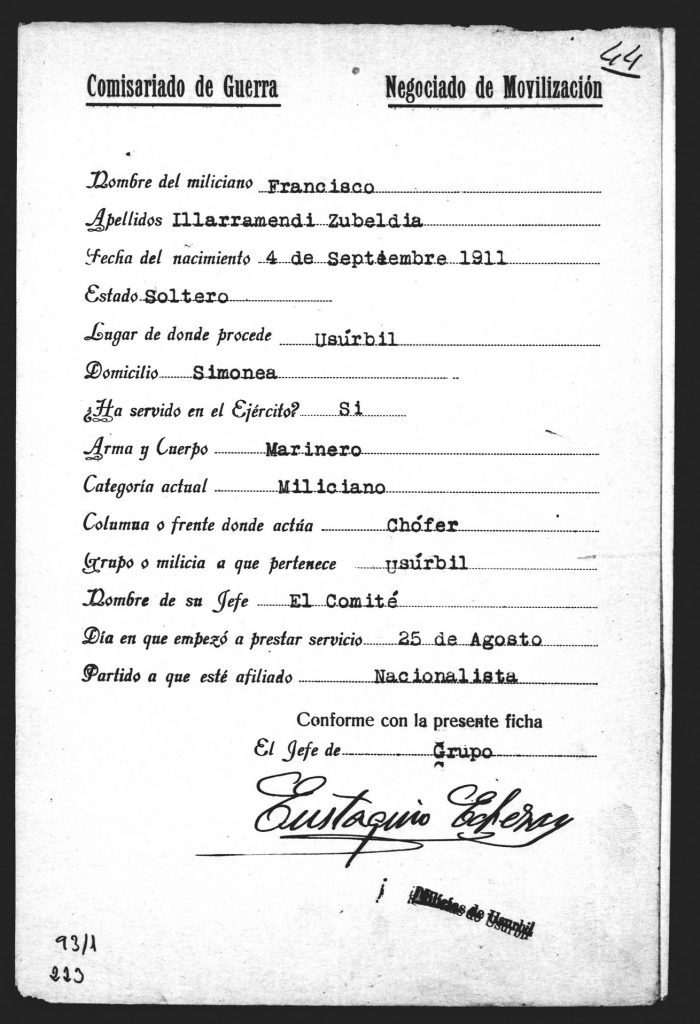 44
Comisariado de Guerra Negociado de Movilización
Nombre del miliciano Francisco
Apellidos Illarramendi Zubeldia
Fecha del nacimiento 4 de Septiembre 1911
Estado Soltero
Lugar de donde procede Usúrbil
Domicilio Simonea
¿Ha servido en el Ejército? Si
Arma y Cuerpo Marinero
Categoría actual Miliciano
Columna o frente donde actúa Chófer
Grupo o milicia a que pertenece Usúrbil
Nombre de su Jefe El Comité
Día en que empezó a prestar servicio 25 de Agosto
Partido a que esté afiliado Nacionalista
Conforme con la presente ficha
El Jefe de Grupo
Eustaquio
Milicias de Usurbil
93/1
223